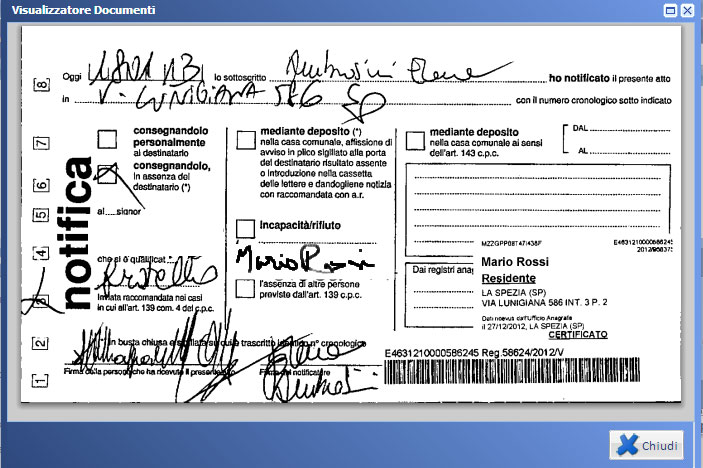 Visualizzatore Documenti
8
Oggi lo sottoscritto Ambrosini Elena ho notificato il presente atto
in V. LUNIGIANA 586 SP con il numero cronologico sotto indicato
7
6
5
4
3
2
1
notifica
consegnandolo
personalmente
al destinatario
consegnandolo,
in assenza del
destinatario (*)
al....signor
che si è qualificat
fratello
Inviata raccomandata nei casi
in cui all'art. 139 com. 4 del c.p.c.
mediante deposito (*)
nella casa comunale, affissione di
avviso in plico sigillato alla porta
del destinatario risultato assente
o introduzione nella cassetta
delle lettere e dandogliene notizia
con raccomandata con a.r.
Incapacità/rifiuto
Mario Rossi
l'assenza di altre persone
previste dall'art. 139 c.p.c.
mediante deposito
nella casa comunale ai sensi
dell'art. 143 c.p.c.
DAL
AL
MZZGPP68T47I438F
E4631210000586245
2012/958373
Dai registri anag
Mario Rossi
Residente
LA SPEZIA (SP)
VIA LUNIGIANA 586 INT. 3 P. 2
Dati ricevuti dall'Ufficio Anagrafe
il 27/12/2012, LA SPEZIA (SP)
CERTIFICATO
in busta chiusa e sigillata su cui è trascritto identico n° cronologico
Firma della persona che ha ricevuto il presente atto
Firma del notificatore
Elena
Ambrosini
E4631210000586245 Reg.58624/2012/V
Chiudi